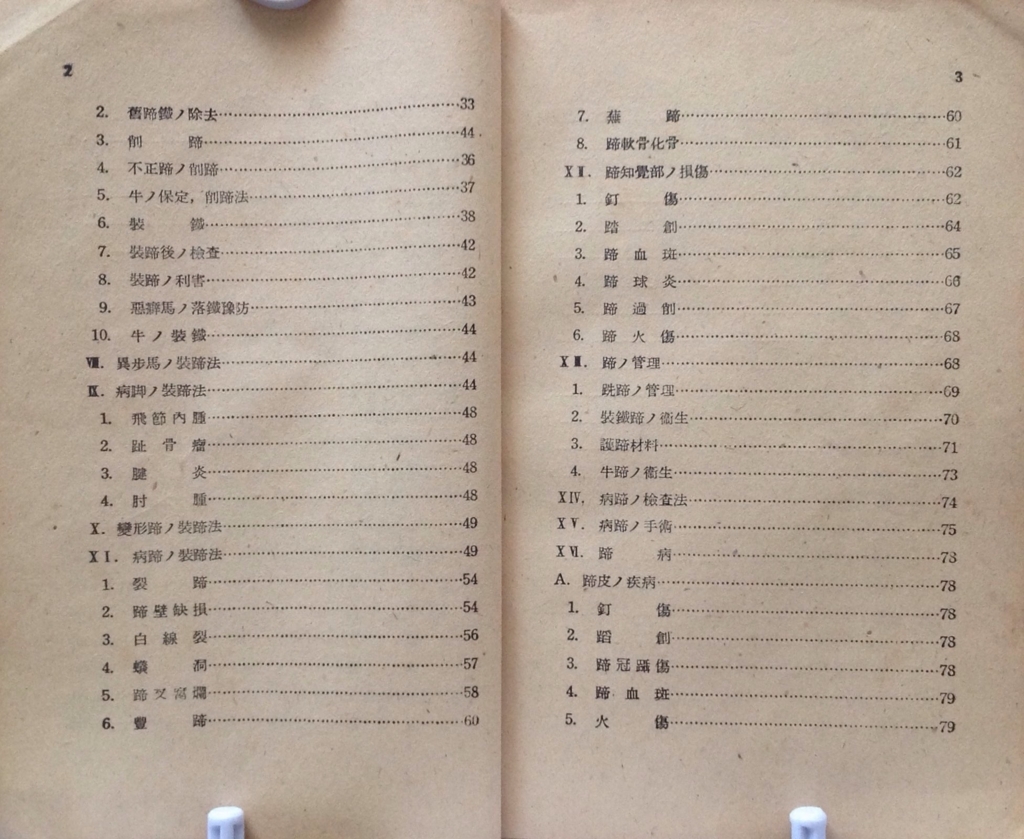 2
2. 舊蹄鐵ノ除去 33
3. 削蹄 44
4. 不正蹄ノ削蹄 36
5. 牛ノ保定，削蹄法 37
6. 裝鐵 38
7. 裝蹄後ノ檢査 42
8. 裝蹄ノ利害 42
9. 惡癖馬ノ落鐵豫防 43
10. 牛ノ裝鐵 44
Ⅷ. 異步馬ノ裝蹄法 44
Ⅸ. 病脚ノ裝蹄法 44
1. 飛節內腫 48
2. 趾骨瘤 48
3. 腱炎 48
4. 肘腫 48
X. 變形蹄ノ裝蹄法 49
XI. 病蹄ノ裝蹄法 49
1. 裂蹄 54
2. 蹄壁缺損 54
3. 白線裂 56
4. 蟻洞 57
5. 蹄叉腐爛 58
6. 豐蹄 60
3
7. 蕪蹄 60
8. 蹄軟骨化骨 61
XⅡ. 蹄知覺部ノ損傷 62
1. 釘傷 62
2. 踏創 64
3. 蹄血斑 65
4. 蹄球炎 66
5. 蹄過削 67
6. 蹄火傷 68
XⅢ. 蹄ノ管理 68
1. 跣蹄ノ管理 69
2. 裝鐵蹄ノ衞生 70
3. 護蹄材料 71
4. 牛蹄ノ衞生 73
XIV. 病蹄ノ檢査法 74
XV. 病蹄ノ手術 75
XⅥ. 蹄病 78
A. 蹄皮ノ疾病 78
1. 釘傷 78
2. 蹈創 78
3. 蹄冠躡傷 78
4. 蹄血斑 79
5. 火傷 79